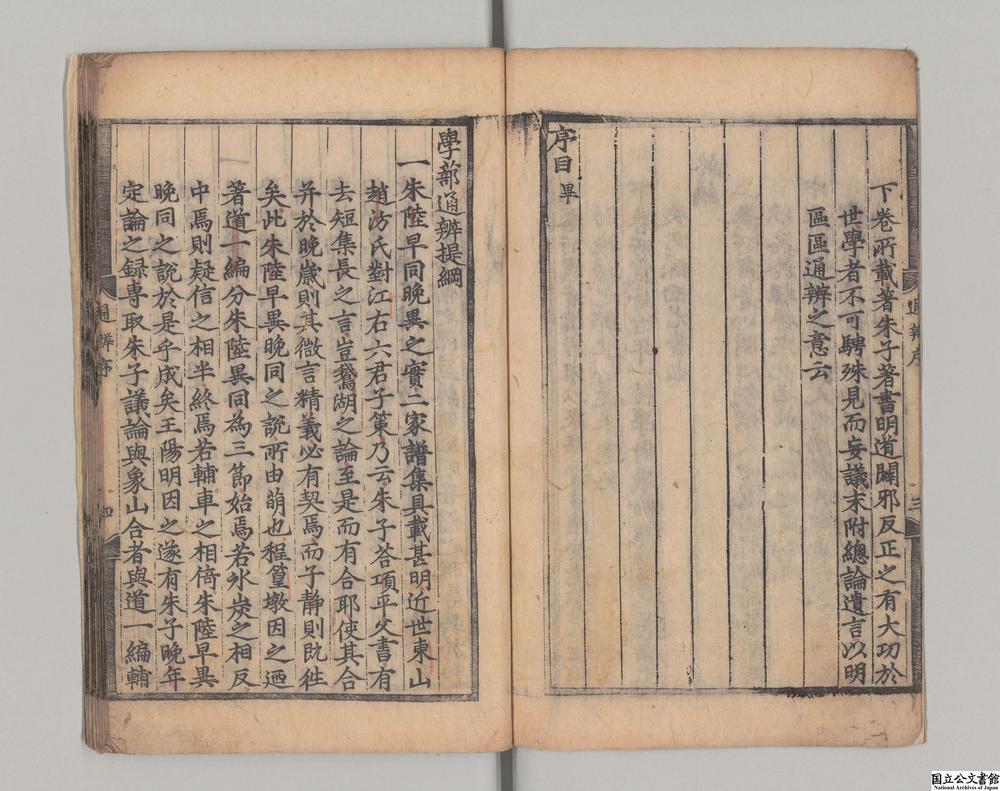 下卷所載著朱子著書明道闢邪反正之有大功於
世學者不可騁殊見而妄議末附總論遺言以明
區區通辨之意云
序目 畢
通辨序
三
學蔀通辨提綱
一朱陸早同晚異之實二家譜集具載甚明近世東山
趙汸氏對江右六君子策乃云朱子荅項平父書有
去短集長之言豈鵝湖之論至是而有合耶使其合
并於晚歲則其微言精義必有契焉而子靜則旣徃
矣此朱陸早異晚同之說所由萌也程篁墩因之廼
著道一編分朱陸異同為三節始焉若氷炭之相反
中焉則疑信之相半終焉若輔車之相倚朱陸早異
晚同之說於是乎成矣王陽明因之遂有朱子晚年
定論之録專取朱子議論與象山合者與道一編輔
通辨序
四
国立公文書館
National Archives of Japan